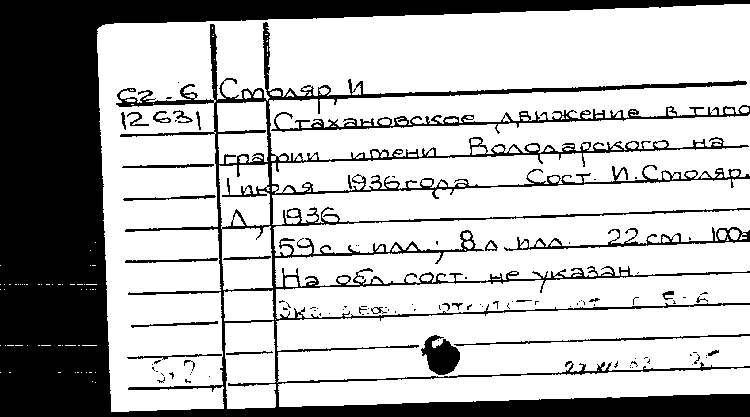 62-6 Столяр, И
12631 Стахановское движение в типо
графии имени Володарского на
1 июля 1936 года. Сост. И. Столяр.
Л., 1936
59 с. с илл.; 8 л. илл. 22 см. 100
На обл. сост. не указан.
Экз. деф.: отсутств. с 5-6